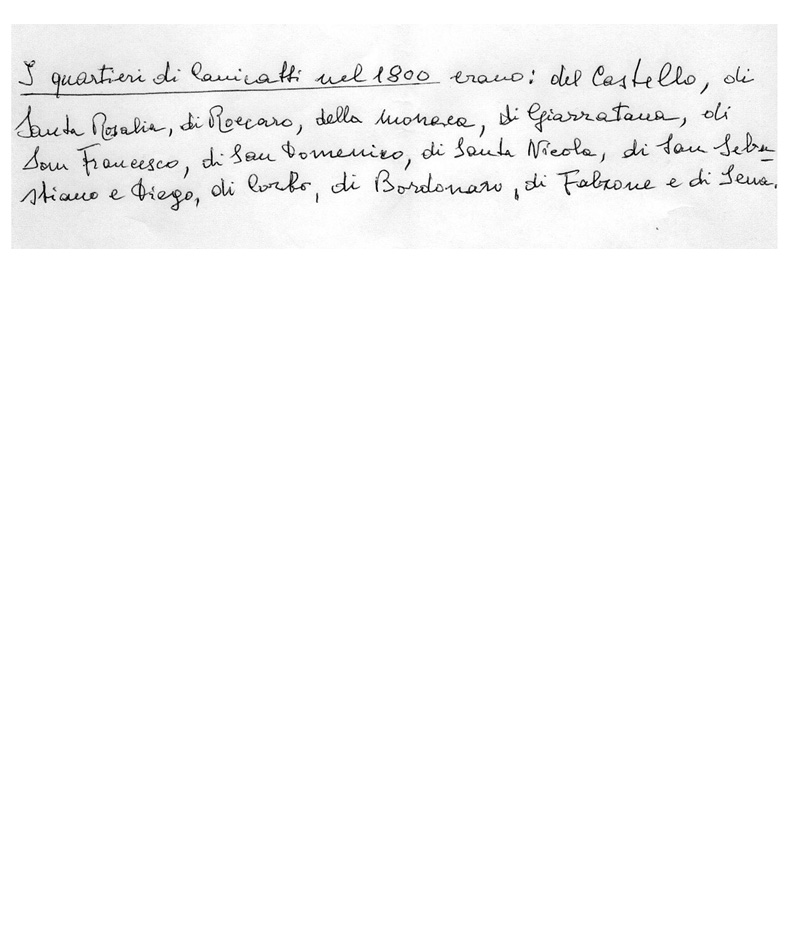 I quartieri di Canicattì nel 1800 erano: del Castello, di
Santa Rosalia, di Roccaro, della monaca, di Giarratana, di
San Francesco, di San Domenico, di Santa Nicola, di San Seba
stiano e Diego, di Corbo, di Bordonaro, di Falzone e di Sena.